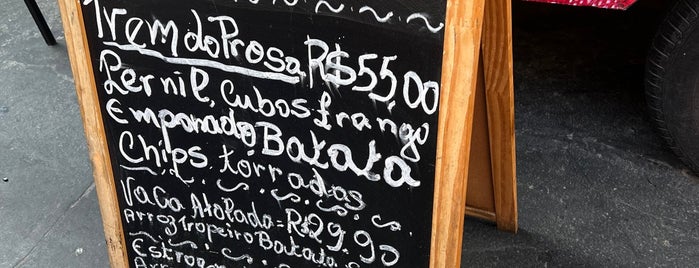 Trem do Prosa R$55,00
Pernil, Cubos frango
Empanado Batata
Chips, torradas
Vaca Atolada=R$29,90
Arroz Tropeiro Batata
Estrogo
Arr